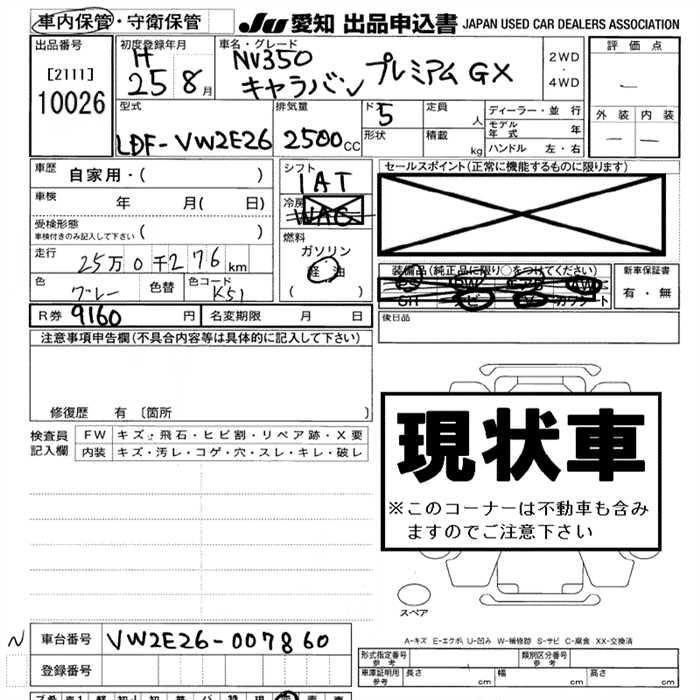 車内保管・守衛保管 JU 愛知 出品申込書 JAPAN USED CAR DEALERS ASSOCIATION
出品番号
[2111]
10026
初度登録年月
H
25 8月
車名・グレード
NV350
キャラバン プレミアムGX
2WD
・
4WD
評価点
—
外装 内装
— —
型式
LDF-VW2E26
排気量
2500CC
ドア
5
形状
定員 人
積載 kg
ディーラー・並行
モデル年式 年
ハンドル 左・右
車歴 自家用・( )
車検 年 月( 日)
受検形態
車検付きのみ記入して下さい ( )
走行
25万0千276km
色 グレー
色替
色コード K51
R券 9160 円
名変期限 月 日
シフト
IAT
冷房
WAC
燃料
ガソリン
軽油
( )
セールスポイント(正常に機能するものに限ります)
装備品(純正品に限り○をつけてください)
PS PW エアB AW
SR ナビ TV カワシート
新車保証書
有・無
後日品
注意事項申告欄(不具合内容等は具体的に記入して下さい)
修復歴 有 〔箇所 〕
検査員
記入欄
FW キズ・飛石・ヒビ割・リペア跡・X要
内装 キズ・汚レ・コゲ・穴・スレ・キレ・破レ
現状車
※このコーナーは不動車も含み
ますのでご注意下さい
スペア
A-キズ E-エクボ U-凹み W-補修跡 S-サビ C-腐食 XX-交換済
N 車台番号 VW2E26-007860
登録番号
形式指定番号
参考
類別区分番号
参考
車庫証明用
参考
長さ cm
幅 cm
高さ cm